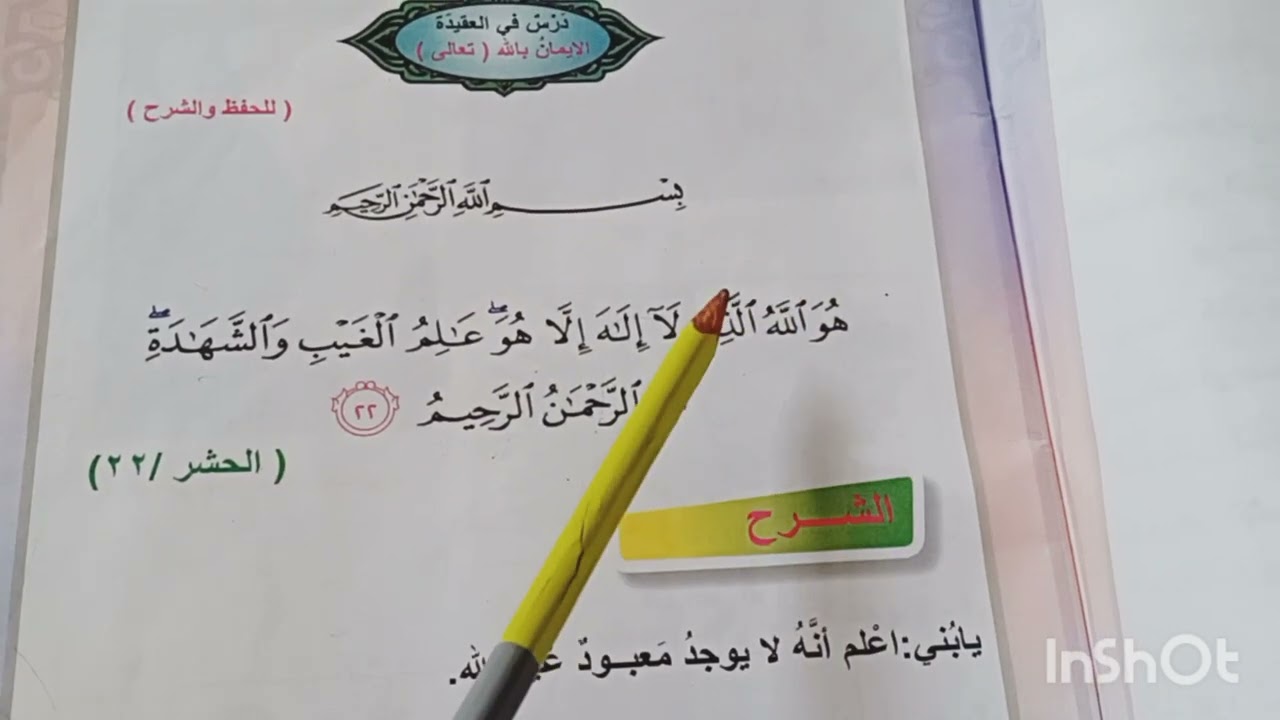 دَرْسٌ في العقيدَة
الإيمانُ بالله ( تعالى )
( للحفظ والشرح )
بِسْمِ ٱللَّهِ ٱلرَّحْمَٰنِ ٱلرَّحِيمِ
هُوَ ٱللَّهُ ٱلَّذِي لَآ إِلَٰهَ إِلَّا هُوَۖ عَٰلِمُ ٱلْغَيْبِ وَٱلشَّهَٰدَةِۖ
ٱلرَّحْمَٰنُ ٱلرَّحِيمُ ٢٢
( الحشر /٢٢)
الشرح
يابُني:اعْلم أنَّهُ لا يوجدُ مَعبودٌ الله.
InShOt